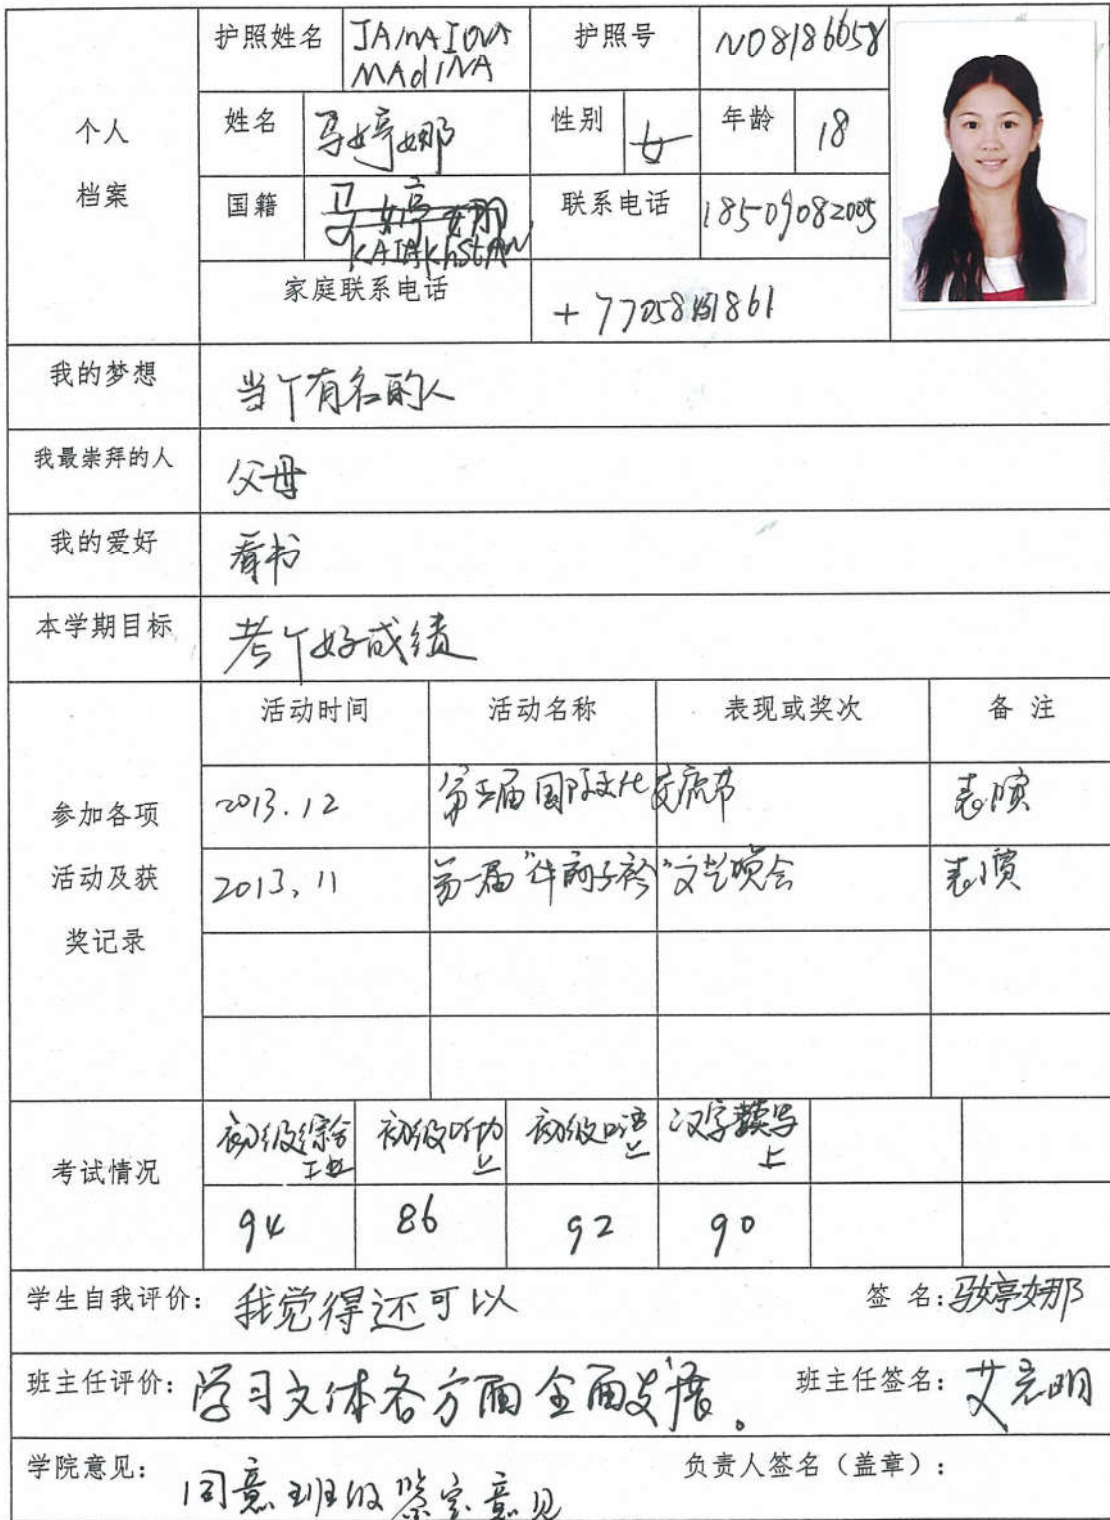 护照姓名 JAMAIOVA MADINA 护照号 N08186658
个人档案
姓名 马婷娜 性别 女 年龄 18
国籍 马婷娜 KAZAKhSTAN 联系电话 18509082005
家庭联系电话 +77058181861
我的梦想 当个有名的人
我最崇拜的人 父母
我的爱好 看书
本学期目标 考个好成绩
参加各项活动及获奖记录
活动时间 活动名称 表现或奖次 备 注
2013.12 第五届国际文化交流节 表演
2013.11 第一届“件前子衿”文艺晚会 表演
考试情况
初级综合 上 初级听力 上 初级口语 上 汉字读写 上
94 86 92 90
学生自我评价: 我觉得还可以 签 名: 马婷娜
班主任评价: 学习文体各方面全面发展。 班主任签名: 艾
学院意见: 同意班级鉴定意见 负责人签名（盖章）: